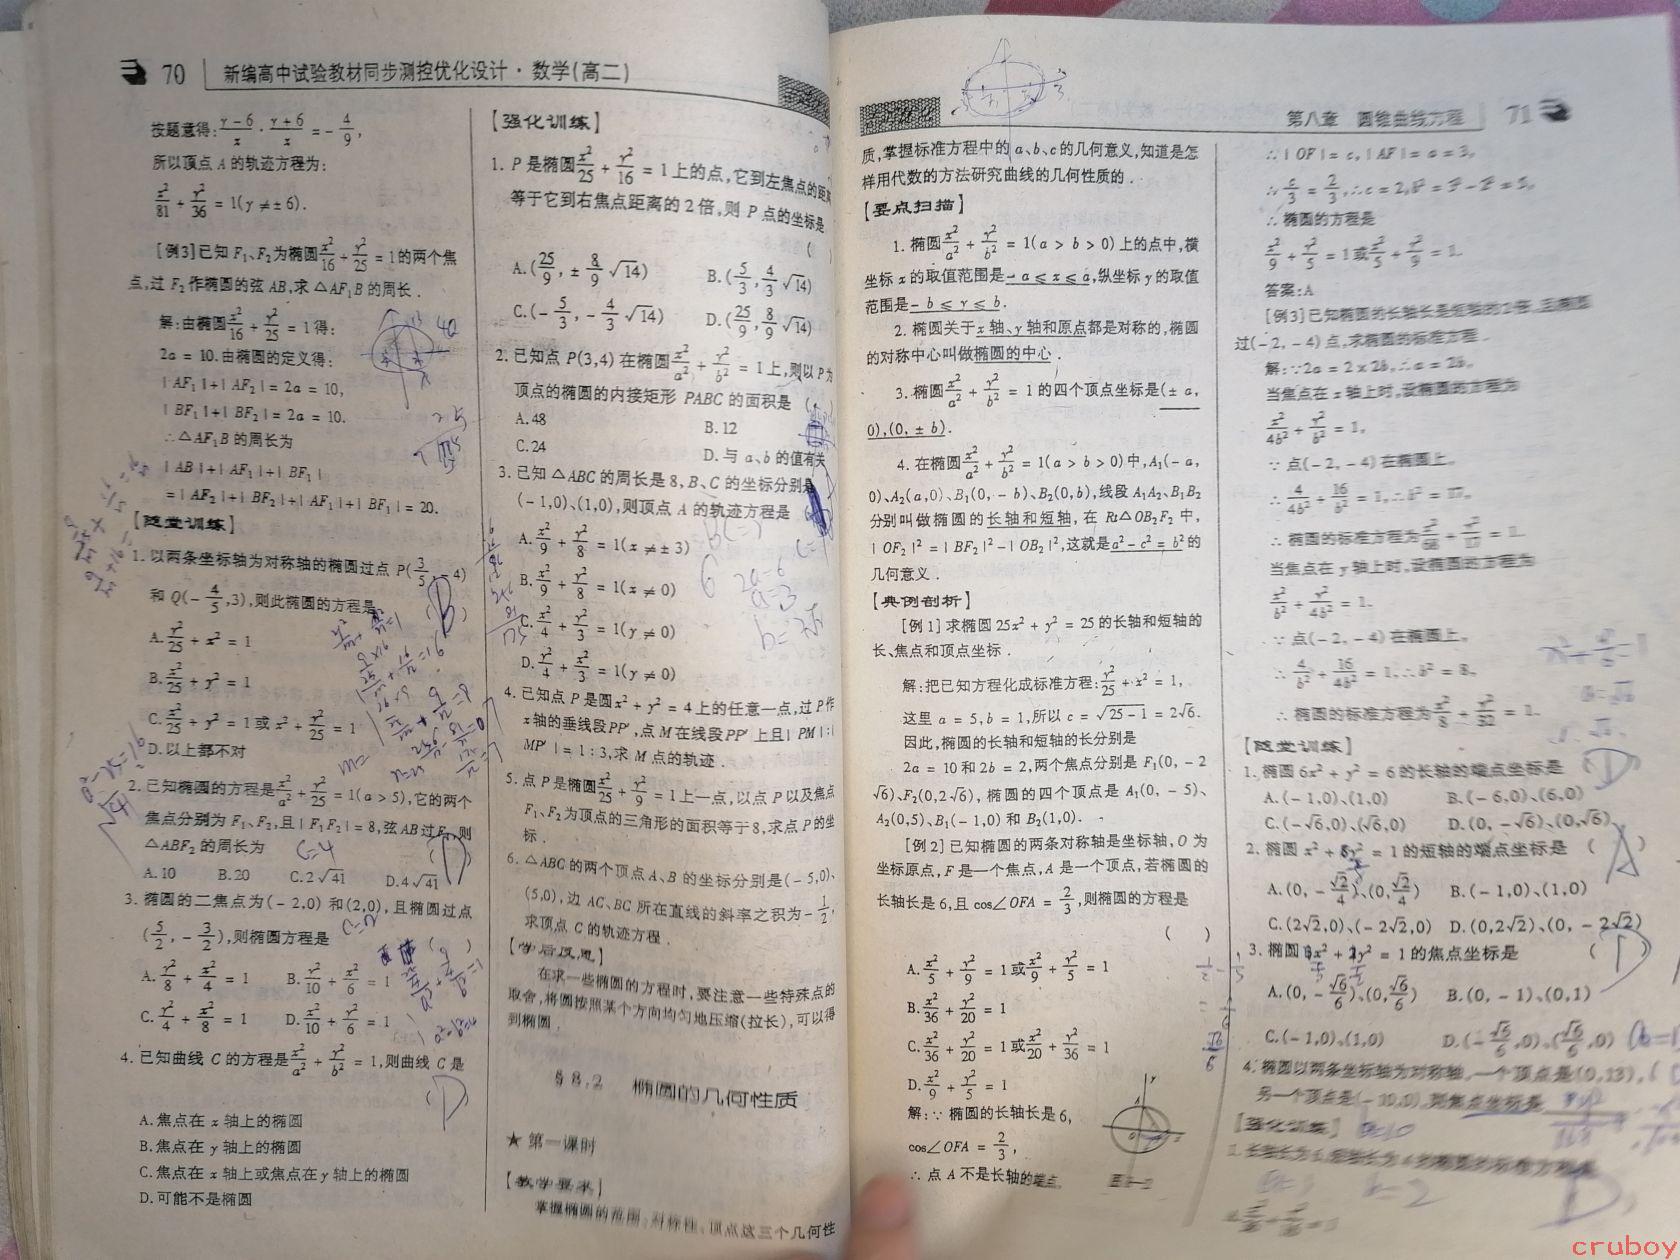 70 新编高中试验教材同步测控优化设计·数学(高二)
按题意得:(y-6)/x·(y+6)/x=-4/9,
所以顶点 A 的轨迹方程为:
x²/81+y²/36=1(y≠±6).
[例3]已知 F₁、F₂为椭圆x²/16+y²/25=1的两个焦
点,过 F₂作椭圆的弦 AB,求△AF₁B 的周长.
解:由椭圆x²/16+y²/25=1得:
2a=10.由椭圆的定义得:
|AF₁|+|AF₂|=2a=10,
|BF₁|+|BF₂|=2a=10.
∴△AF₁B 的周长为
|AB|+|AF₁|+|BF₁|
=|AF₂|+|BF₂|+|AF₁|+|BF₁|=20.
【随堂训练】
1.以两条坐标轴为对称轴的椭圆过点 P(3/5,-4)
和 Q(-4/5,3),则此椭圆的方程是
B
A.y²/25+x²=1
B.x²/25+y²=1
C.x²/25+y²=1或 x²+y²/25=1
D.以上都不对
2.已知椭圆的方程是x²/a²+y²/25=1(a>5),它的两个
焦点分别为 F₁、F₂,且|F₁F₂|=8,弦AB过F₁,则
△ABF₂ 的周长为 (D)
c=4
A.10 B.20 C.2√41 D.4√41
3.椭圆的二焦点为(-2,0)和(2,0),且椭圆过点
(5/2,-3/2),则椭圆方程是 ( )
c=2
A.y²/8+x²/4=1 B.y²/10+x²/6=1
C.y²/4+x²/8=1 D.x²/10+y²/6=1
4.已知曲线 C 的方程是x²/a²+y²/b²=1,则曲线 C 是
(D)
A.焦点在 x 轴上的椭圆
B.焦点在 y 轴上的椭圆
C.焦点在 x 轴上或焦点在 y 轴上的椭圆
D.可能不是椭圆
【强化训练】
1. P 是椭圆x²/25+y²/16=1上的点,它到左焦点的距
等于它到右焦点距离的2倍,则 P 点的坐标是
( )
A.(25/9,±8/9√14) B.(5/3,4/3√14)
C.(-5/3,-4/3√14) D.(25/9,8/9√14)
2.已知点 P(3,4)在椭圆x²/a²+y²/b²=1上,则以 P为
顶点的椭圆的内接矩形 PABC 的面积是 (
A.48 B.12
C.24 D.与 a、b 的值有关
3.已知△ABC 的周长是8,B、C 的坐标分别是
(-1,0)、(1,0),则顶点 A 的轨迹方程是
A.x²/9+y²/8=1(x≠±3)
B.x²/9+y²/8=1(x≠0)
C.x²/4+y²/3=1(y≠0)
D.y²/4+x²/3=1(y≠0)
2a=6
a=3
4.已知点 P 是圆x²+y²=4上的任意一点,过 P作
x轴的垂线段PP′,点M在线段PP′上且|PM|:|
MP′|=1:3,求 M 点的轨迹.
5.点 P是椭圆x²/25+y²/9=1上一点,以点 P以及焦点
F₁、F₂为顶点的三角形的面积等于8,求点 P的坐
标.
6.△ABC 的两个顶点A、B 的坐标分别是(-5,0)、
(5,0),边 AC、BC 所在直线的斜率之积为-1/2,
求顶点 C 的轨迹方程.
【学后反思】
在求一些椭圆的方程时,要注意一些特殊点的
取舍,将圆按照某个方向均匀地压缩(拉长),可以得
到椭圆.
§8.2 椭圆的几何性质
★第一课时
【教学要求】
掌握椭圆的范围、对称性、顶点这三个几何性
第八章 圆锥曲线方程 71
质,掌握标准方程中的 a、b、c的几何意义,知道是怎
样用代数的方法研究曲线的几何性质的.
【要点扫描】
1.椭圆x²/a²+y²/b²=1(a>b>0)上的点中,横
坐标 x的取值范围是-a≤x≤a,纵坐标 y的取值
范围是-b≤y≤b.
2.椭圆关于x 轴、y 轴和原点都是对称的,椭圆
的对称中心叫做椭圆的中心.
3.椭圆x²/a²+y²/b²=1的四个顶点坐标是(±a,
0),(0,±b).
4.在椭圆x²/a²+y²/b²=1(a>b>0)中,A₁(-a,
0)、A₂(a,0)、B₁(0,-b)、B₂(0,b),线段 A₁A₂、B₁B₂
分别叫做椭圆的长轴和短轴,在 Rt△OB₂F₂ 中,
|OF₂|²=|BF₂|²-|OB₂|²,这就是a²-c²=b²的
几何意义.
【典例剖析】
[例1]求椭圆 25x²+y²=25的长轴和短轴的
长、焦点和顶点坐标.
解:把已知方程化成标准方程:y²/25+x²=1,
这里 a=5,b=1,所以 c=√25-1=2√6.
因此,椭圆的长轴和短轴的长分别是
2a=10和2b=2,两个焦点分别是 F₁(0,-2
√6)、F₂(0,2√6),椭圆的四个顶点是 A₁(0,-5)、
A₂(0,5)、B₁(-1,0)和 B₂(1,0).
[例2]已知椭圆的两条对称轴是坐标轴,O 为
坐标原点,F 是一个焦点,A 是一个顶点,若椭圆的
长轴长是6,且 cos∠OFA=2/3,则椭圆的方程是
( )
A.x²/5+y²/9=1或x²/9+y²/5=1
B.x²/36+y²/20=1
C.x²/36+y²/20=1或x²/20+y²/36=1
D.x²/9+y²/5=1
解:∵椭圆的长轴长是6,
cos∠OFA=2/3,
∴点 A 不是长轴的端点.
∴|OF|=c,|AF|=a=3,
∴c/3=2/3,∴c=2,b²=3²-2²=5,
∴椭圆的方程是
x²/9+y²/5=1或x²/5+y²/9=1.
答案:A
[例3]已知椭圆的长轴长是短轴的2倍,且椭圆
过(-2,-4)点,求椭圆的标准方程.
解:∵2a=2×2b,∴a=2b,
当焦点在 x 轴上时,设椭圆的方程为
x²/4b²+y²/b²=1,
∵点(-2,-4)在椭圆上,
∴4/4b²+16/b²=1,∴b²=17,
∴椭圆的标准方程为x²/68+y²/17=1.
当焦点在 y 轴上时,设椭圆的方程为
x²/b²+y²/4b²=1.
∵点(-2,-4)在椭圆上,
∴4/b²+16/4b²=1,∴b²=8,
∴椭圆的标准方程为x²/8+y²/32=1.
【随堂训练】
1.椭圆6x²+y²=6的长轴的端点坐标是 (D)
A.(-1,0)、(1,0) B.(-6,0)、(6,0)
C.(-√6,0)、(√6,0) D.(0,-√6)、(0,√6)
2.椭圆 x²+8y²=1的短轴的端点坐标是 (A)
A.(0,-√2/4)、(0,√2/4) B.(-1,0)、(1,0)
C.(2√2,0)、(-2√2,0) D.(0,2√2)、(0,-2√2)
3.椭圆3x²+2y²=1的焦点坐标是 (D)
A.(0,-√6/6)、(0,√6/6) B.(0,-1)、(0,1)
C.(-1,0)、(1,0) D.(-√6/6,0)、(√6/6,0)
4.椭圆以两条坐标轴为对称轴,一个顶点是(0,13),
另一个顶点是(-10,0),则焦点坐标是
【强化训练】
1.长轴长为6,短轴长为4的椭圆的标准方程是
D
cruboy